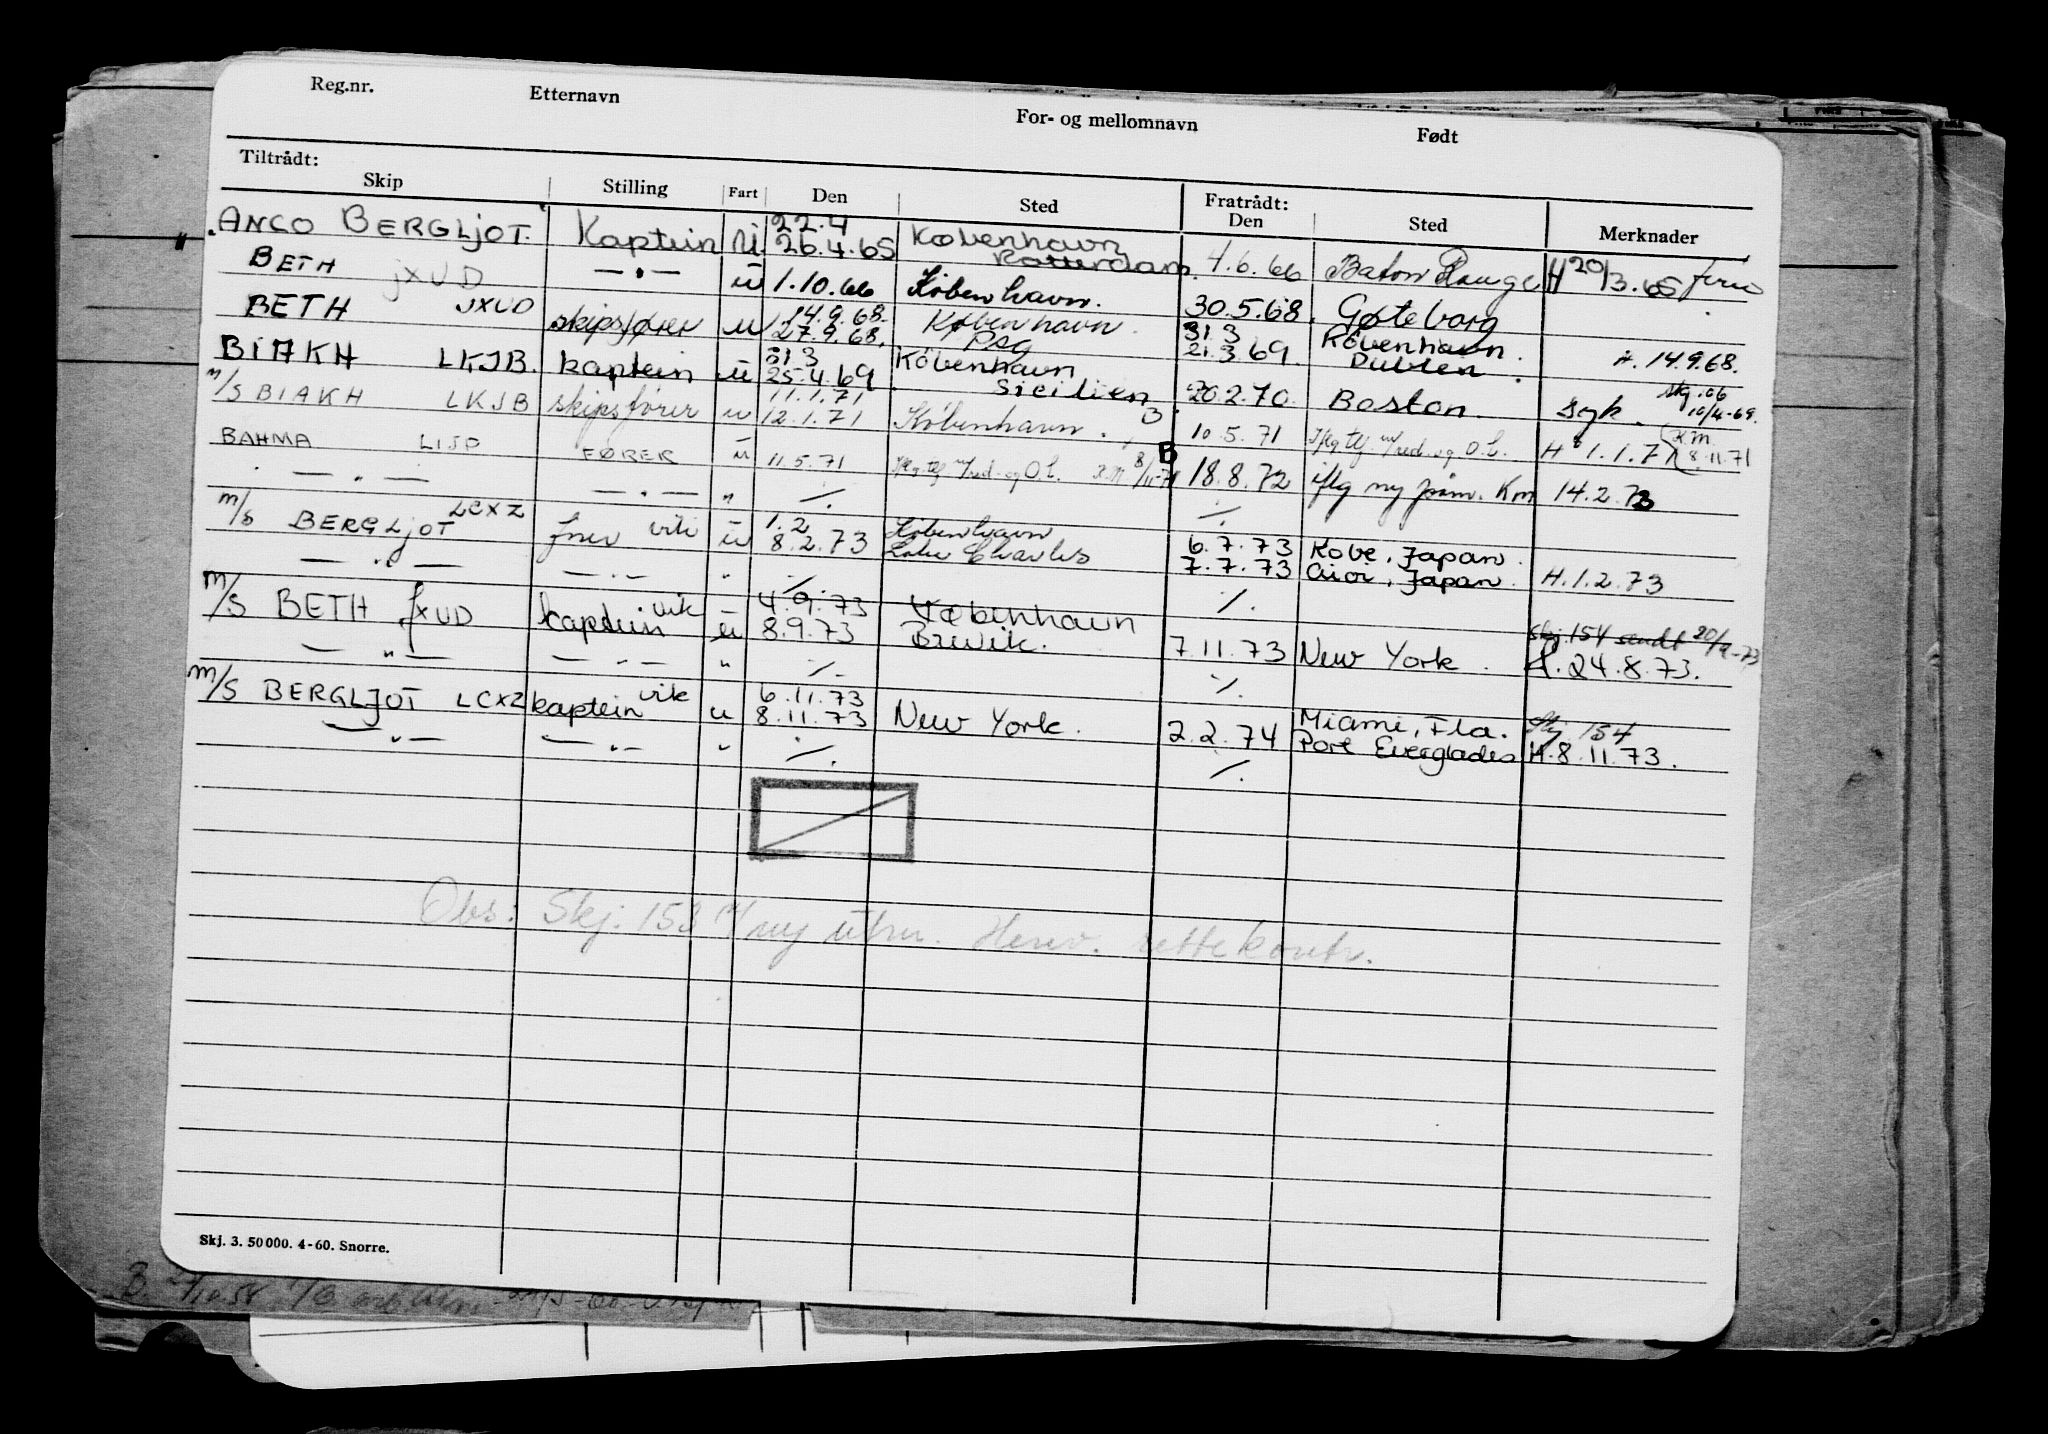 Reg.nr. Etternavn For- og mellomnavn Født
Tiltrådt: Fratrådt:
Skip Stilling Fart Den Sted Den Sted Merknader
22.4
ANCO BERGLJOT Kaptein U 26.4.65 København Rotterdam 4.6.66 Baton Rouge H 20/3.65 ferie
BETH JXUD — " — u 1.10.66 København. 30.5.68. Gøteborg
BETH JXUD skipsfører u 14.9.68. 27.9.68. København PSG 31 3 21.3.69 København. Dublin. H. 14.9.68.
BIAKH LKJB. kaptein u 31 3 25.4.69 København Sicilien 20.2.70. Boston. syk. skj. 06 10/4-69.
m/S BIAKH LKJB skipsfører u 11.1.71 12.1.71 København. 10.5.71 iflg tlf m/red. og O.L. H 1.1.71 K.M. 8.11.71
BAHMA LISD FØRER u 11.5.71 iflg tlf m/red. og O.L. K.M 8/11-71 B 18.8.72 iflg ny påm. Km 14.2.73
— " — — " — " ⁒ ⁒
m/s BERGLJOT LCXZ fører vik u 1.2 8.2.73 København Lake Charles 6.7.73 Kobe, Japan.
7.7.73 Aioi, Japan. H.1.2.73
— " — — " — " ⁒ ⁒
m/S BETH JXUD kaptein vik u 4.9.73 8.9.73 København Brevik. 7.11.73 New York. Skj. 154 sendt 20/9-73 H. 24.8.73.
— " — — " — " ⁒ ⁒
m/S BERGLJOT LCXZ kaptein vik u 6.11.73 8.11.73 New York. 2.2.74 Miami, Fla. Port Everglades Skj 154 H.8.11.73.
— " — — " — " ⁒ ⁒
Obs: Skj. 153 m/ny utm. Henv. rettekontr.
Skj. 3. 50 000. 4-60. Snorre.